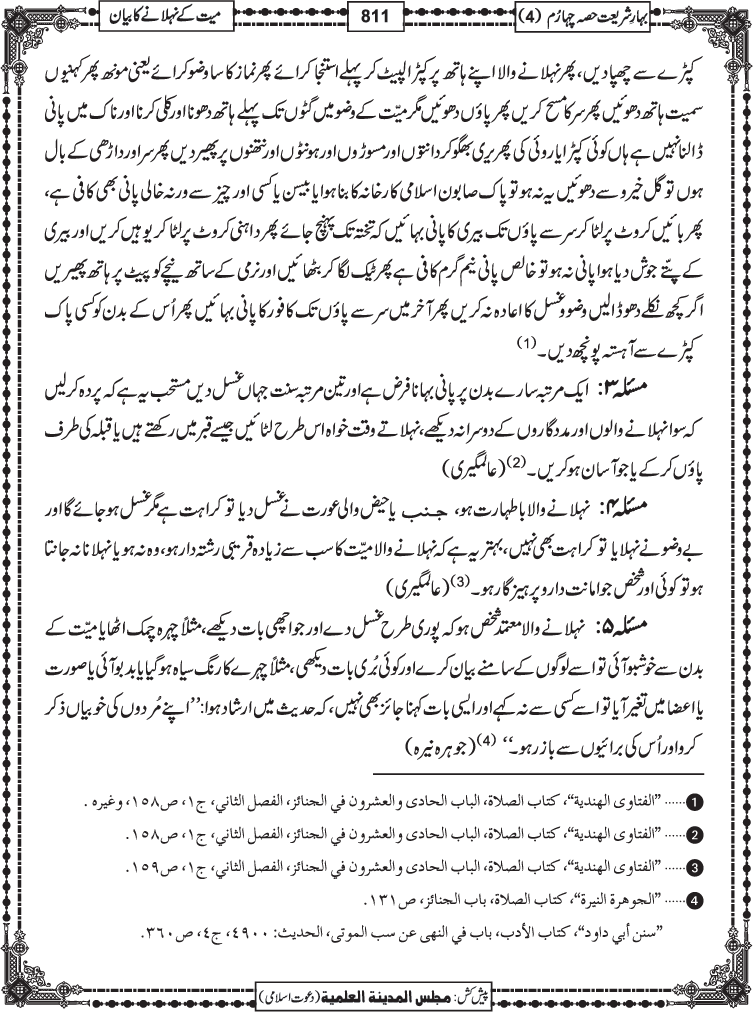 بہارِ شریعت حصہ چہارم (4)
811
میت کے نہلانے کا بیان
کپڑے سے چھپا دیں، پھر نہلانے والا اپنے ہاتھ پر کپڑا لپیٹ کر پہلے استنجا کرائے پھر نماز کا سا وضو کرائے یعنی مونھ پھر کہنیوں
سمیت ہاتھ دھوئیں پھر سر کا مسح کریں پھر پاؤں دھوئیں مگر میّت کے وضو میں گٹوں تک پہلے ہاتھ دھونا اور کلی کرنا اور ناک میں پانی
ڈالنا نہیں ہے ہاں کوئی کپڑا یا روئی کی پھریری بھگو کر دانتوں اور مسوڑوں اور ہونٹوں اور نتھنوں پر پھیر دیں پھر سر اور داڑھی کے بال
ہوں تو گل خیرو سے دھوئیں یہ نہ ہو تو پاک صابون اسلامی کارخانہ کا بنا ہوا یا بیسن یا کسی اور چیز سے ورنہ خالی پانی بھی کافی ہے،
پھر بائیں کروٹ پر لٹا کر سر سے پاؤں تک بیری کا پانی بہائیں کہ تختہ تک پہنچ جائے پھر داہنی کروٹ پر لٹا کر یوہیں کریں اور بیری
کے پتّے جوش دیا ہوا پانی نہ ہو تو خالص پانی نیم گرم کافی ہے پھر ٹیک لگا کر بٹھائیں اور نرمی کے ساتھ نیچے کو پیٹ پر ہاتھ پھیریں
اگر کچھ نکلے دھو ڈالیں وضو و غسل کا اعادہ نہ کریں پھر آخر میں سر سے پاؤں تک کافور کا پانی بہائیں پھر اُس کے بدن کو کسی پاک
کپڑے سے آہستہ پونچھ دیں۔ (1)
مسئلہ ۳: ایک مرتبہ سارے بدن پر پانی بہانا فرض ہے اور تین مرتبہ سنت جہاں غسل دیں مستحب یہ ہے کہ پردہ کر لیں
کہ سوا نہلانے والوں اور مددگاروں کے دوسرا نہ دیکھے، نہلاتے وقت خواہ اس طرح لٹائیں جیسے قبر میں رکھتے ہیں یا قبلہ کی طرف
پاؤں کر کے یا جو آسان ہو کریں۔ (2) (عالمگیری)
مسئلہ ۴: نہلانے والا باطہارت ہو، جنب یا حیض والی عورت نے غسل دیا تو کراہت ہے مگر غسل ہو جائے گا اور
بے وضو نے نہلایا تو کراہت بھی نہیں، بہتر یہ ہے کہ نہلانے والا میّت کا سب سے زیادہ قریبی رشتہ دار ہو، وہ نہ ہو یا نہلانا نہ جانتا
ہو تو کوئی اور شخص جو امانت دار و پرہیزگار ہو۔ (3) (عالمگیری)
مسئلہ ۵: نہلانے والا معتمد شخص ہو کہ پوری طرح غسل دے اور جو اچھی بات دیکھے، مثلاً چہرہ چمک اٹھا یا میّت کے
بدن سے خوشبو آئی تو اسے لوگوں کے سامنے بیان کرے اور کوئی بُری بات دیکھی، مثلاً چہرے کا رنگ سیاہ ہو گیا یا بدبو آئی یا صورت
یا اعضا میں تغیر آیا تو اسے کسی سے نہ کہے اور ایسی بات کہنا جائز بھی نہیں، کہ حدیث میں ارشاد ہوا: ’’اپنے مُردوں کی خوبیاں ذکر
کرو اور اُس کی برائیوں سے باز رہو۔‘‘ (4) (جوہرہ نیرہ)
1 ...... ”الفتاوى الهندية“، كتاب الصلاة، الباب الحادى والعشرون في الجنائز، الفصل الثاني، ج١، ص١٥٨، وغيره .
2 ...... ”الفتاوى الهندية“، كتاب الصلاة، الباب الحادى والعشرون في الجنائز، الفصل الثاني، ج١، ص١٥٨.
3 ...... ”الفتاوى الهندية“، كتاب الصلاة، الباب الحادى والعشرون في الجنائز، الفصل الثاني، ج١، ص١٥٩.
4 ...... ”الجوهرة النيرة“، كتاب الصلاة، باب الجنائز، ص١٣١.
”سنن أبي داود“، كتاب الأدب، باب في النهى عن سب الموتى، الحديث: ٤٩٠٠، ج٤، ص٣٦٠.
پیش کش: مجلس المدینة العلمیة (دعوت اسلامی)